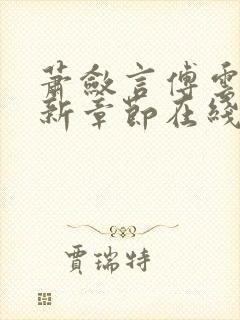 萧敛言傅雲
新章節在綫
賈瑞特